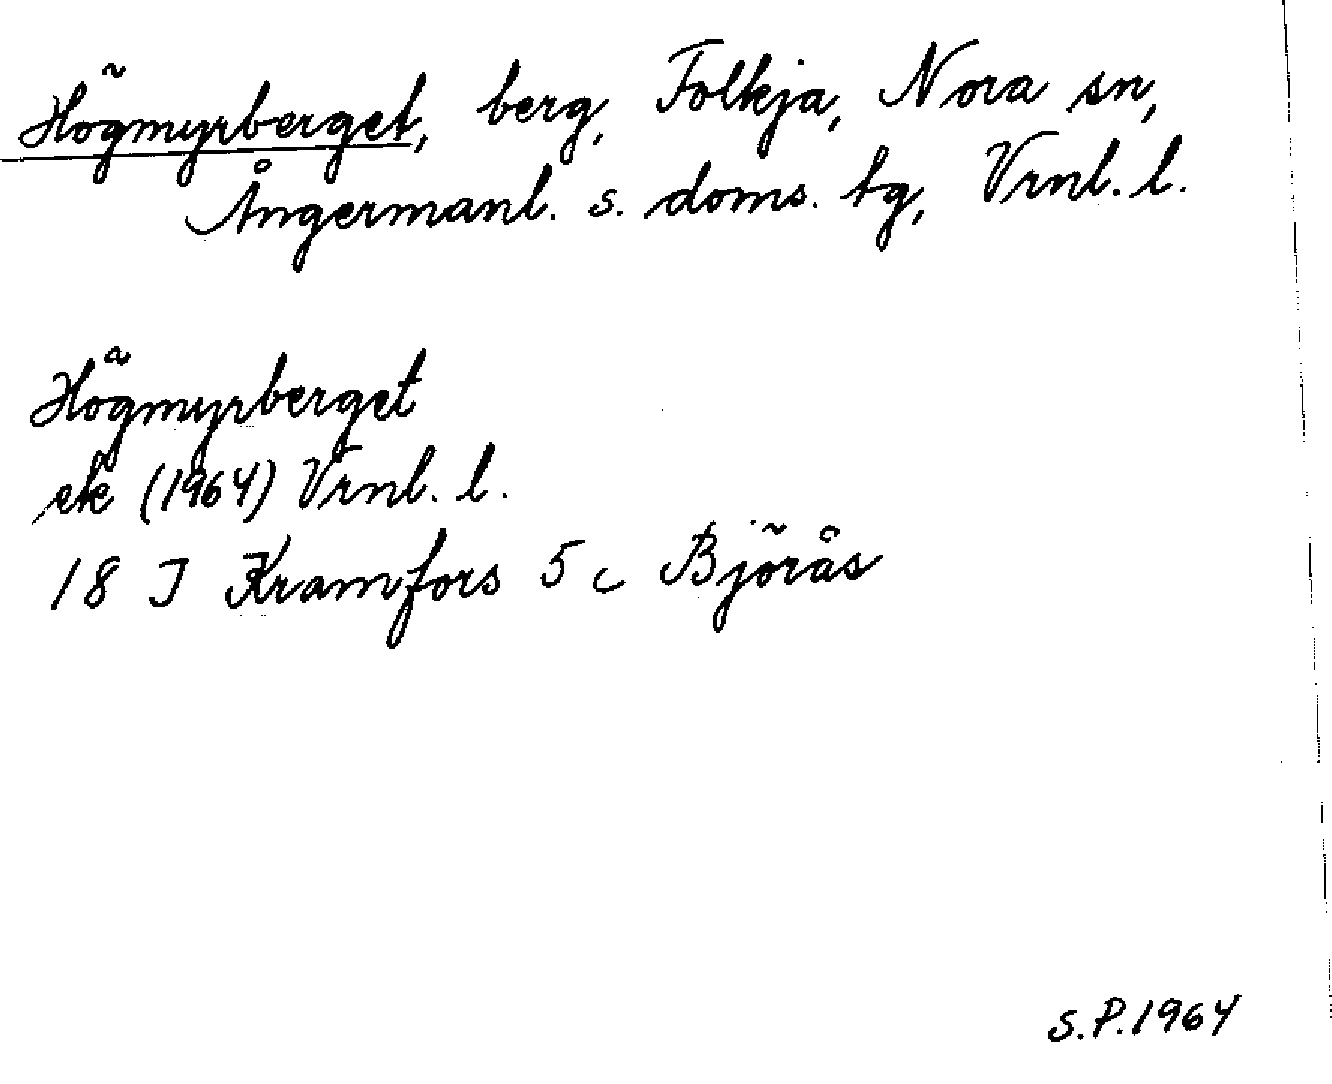 Högmyrberget, berg, Folkja, Nora sn,
Ångermanl. s. doms. tg, Vrnl. l.
Högmyrberget
ek (1964) Vrnl. l.
18 I Kramfors 5 c Björås
S.P.1964